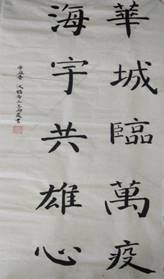 華城臨萬疫
海宇共雄心